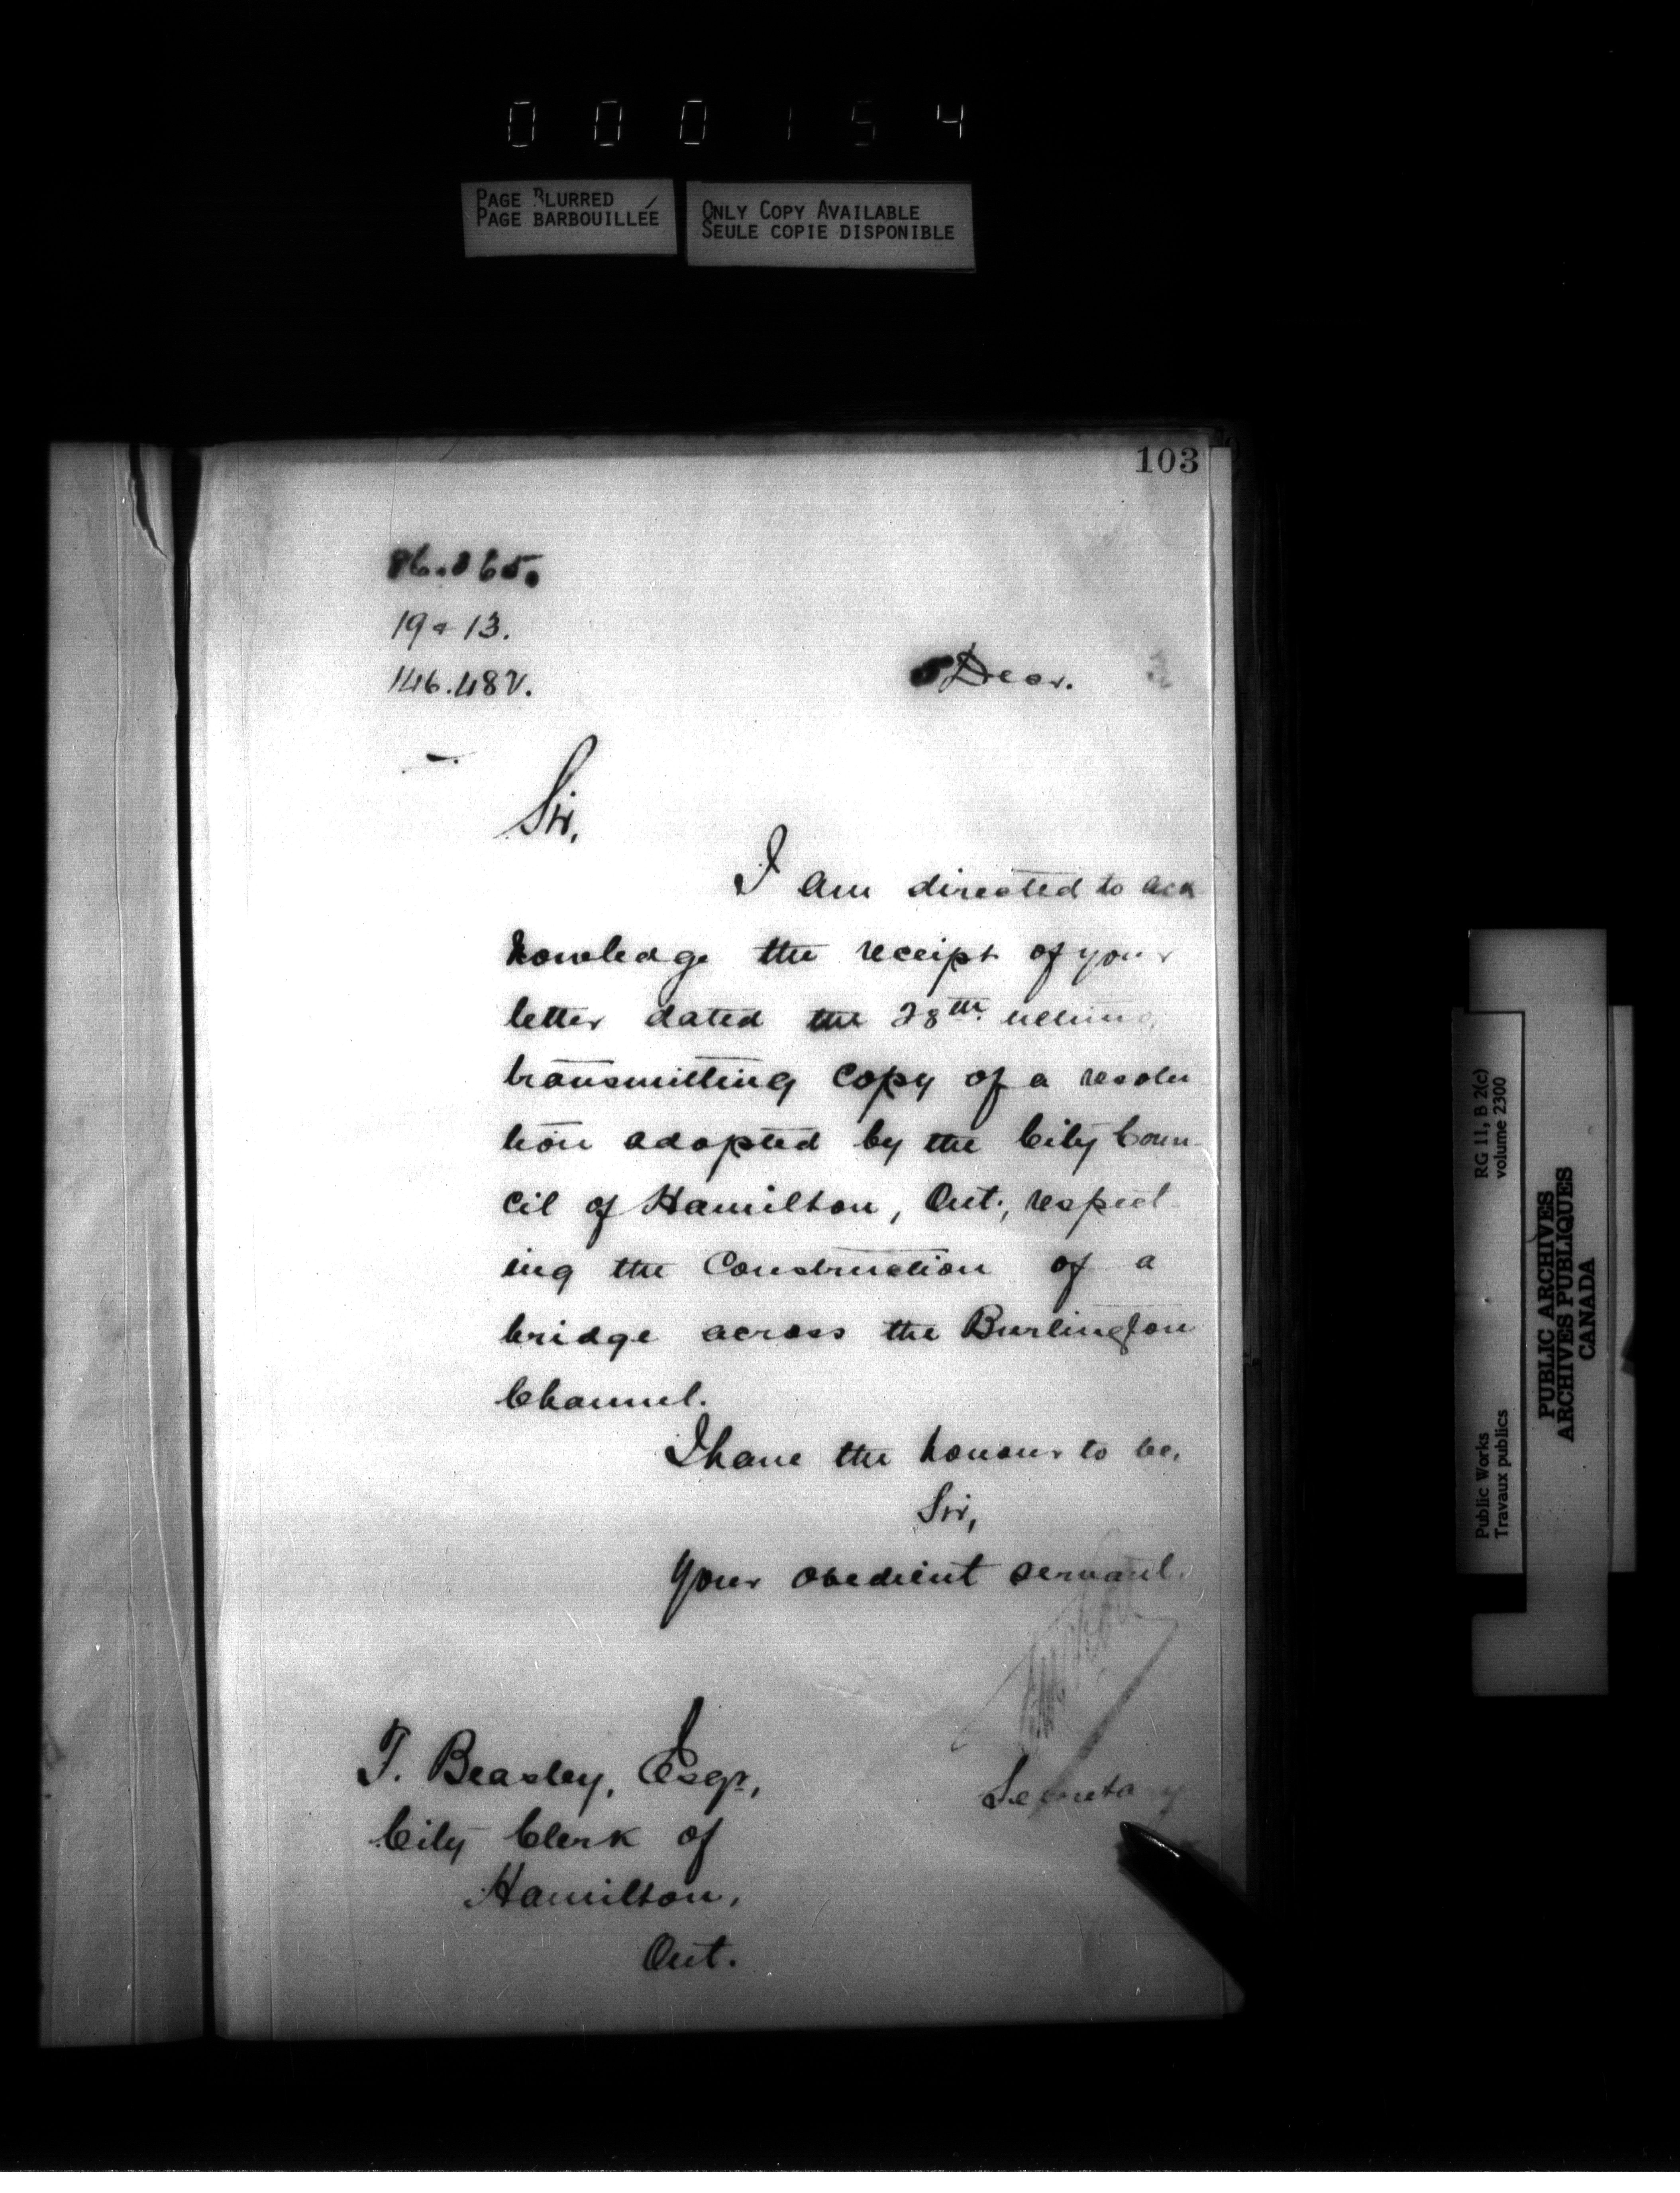 000154
PAGE BLURRED
PAGE BARBOUILLÉE
ONLY COPY AVAILABLE
SEULE COPIE DISPONIBLE
103
19-13.
146.482.
5 Decr.
Sir,
I am directed to ack
nowledge the receipt of your
letter dated the 28th. ultimo,
transmitting copy of a resolu-
tion adopted by the City Coun-
cil of Hamilton, Ont., respect-
ing the Construction of a
bridge across the Burlington
Channel.
I have the honour to be,
Sir,
Your obedient servant.
Secretary
T. Beasley, Esqr,
City Clerk of
Hamilton,
Ont.
RG 11, B 2(c)
volume 2300
Public Works
Travaux publics
PUBLIC ARCHIVES
ARCHIVES PUBLIQUES
CANADA